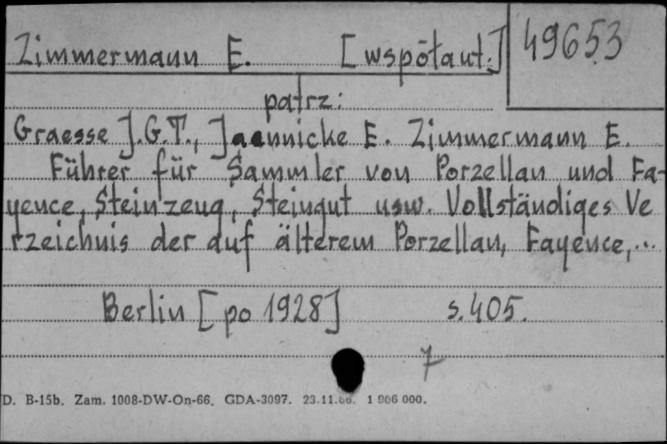 Zimmermann E. [wspōłaut.] 49653
patrz:
Graesse J.G.T., Jaennicke E. Zimmermann E.
Führer für Sammler von Porzellan und Fa-
yence, Steinzeug, Steingut usw. Vollständiges Ve
rzeichnis der auf älterem Porzellan, Fayence,...
Berlin [po 1928] s.405.
7
D. B-15b. Zam. 1008-DW-On-66. GDA-3097. 23.11.66. 1 906 000.